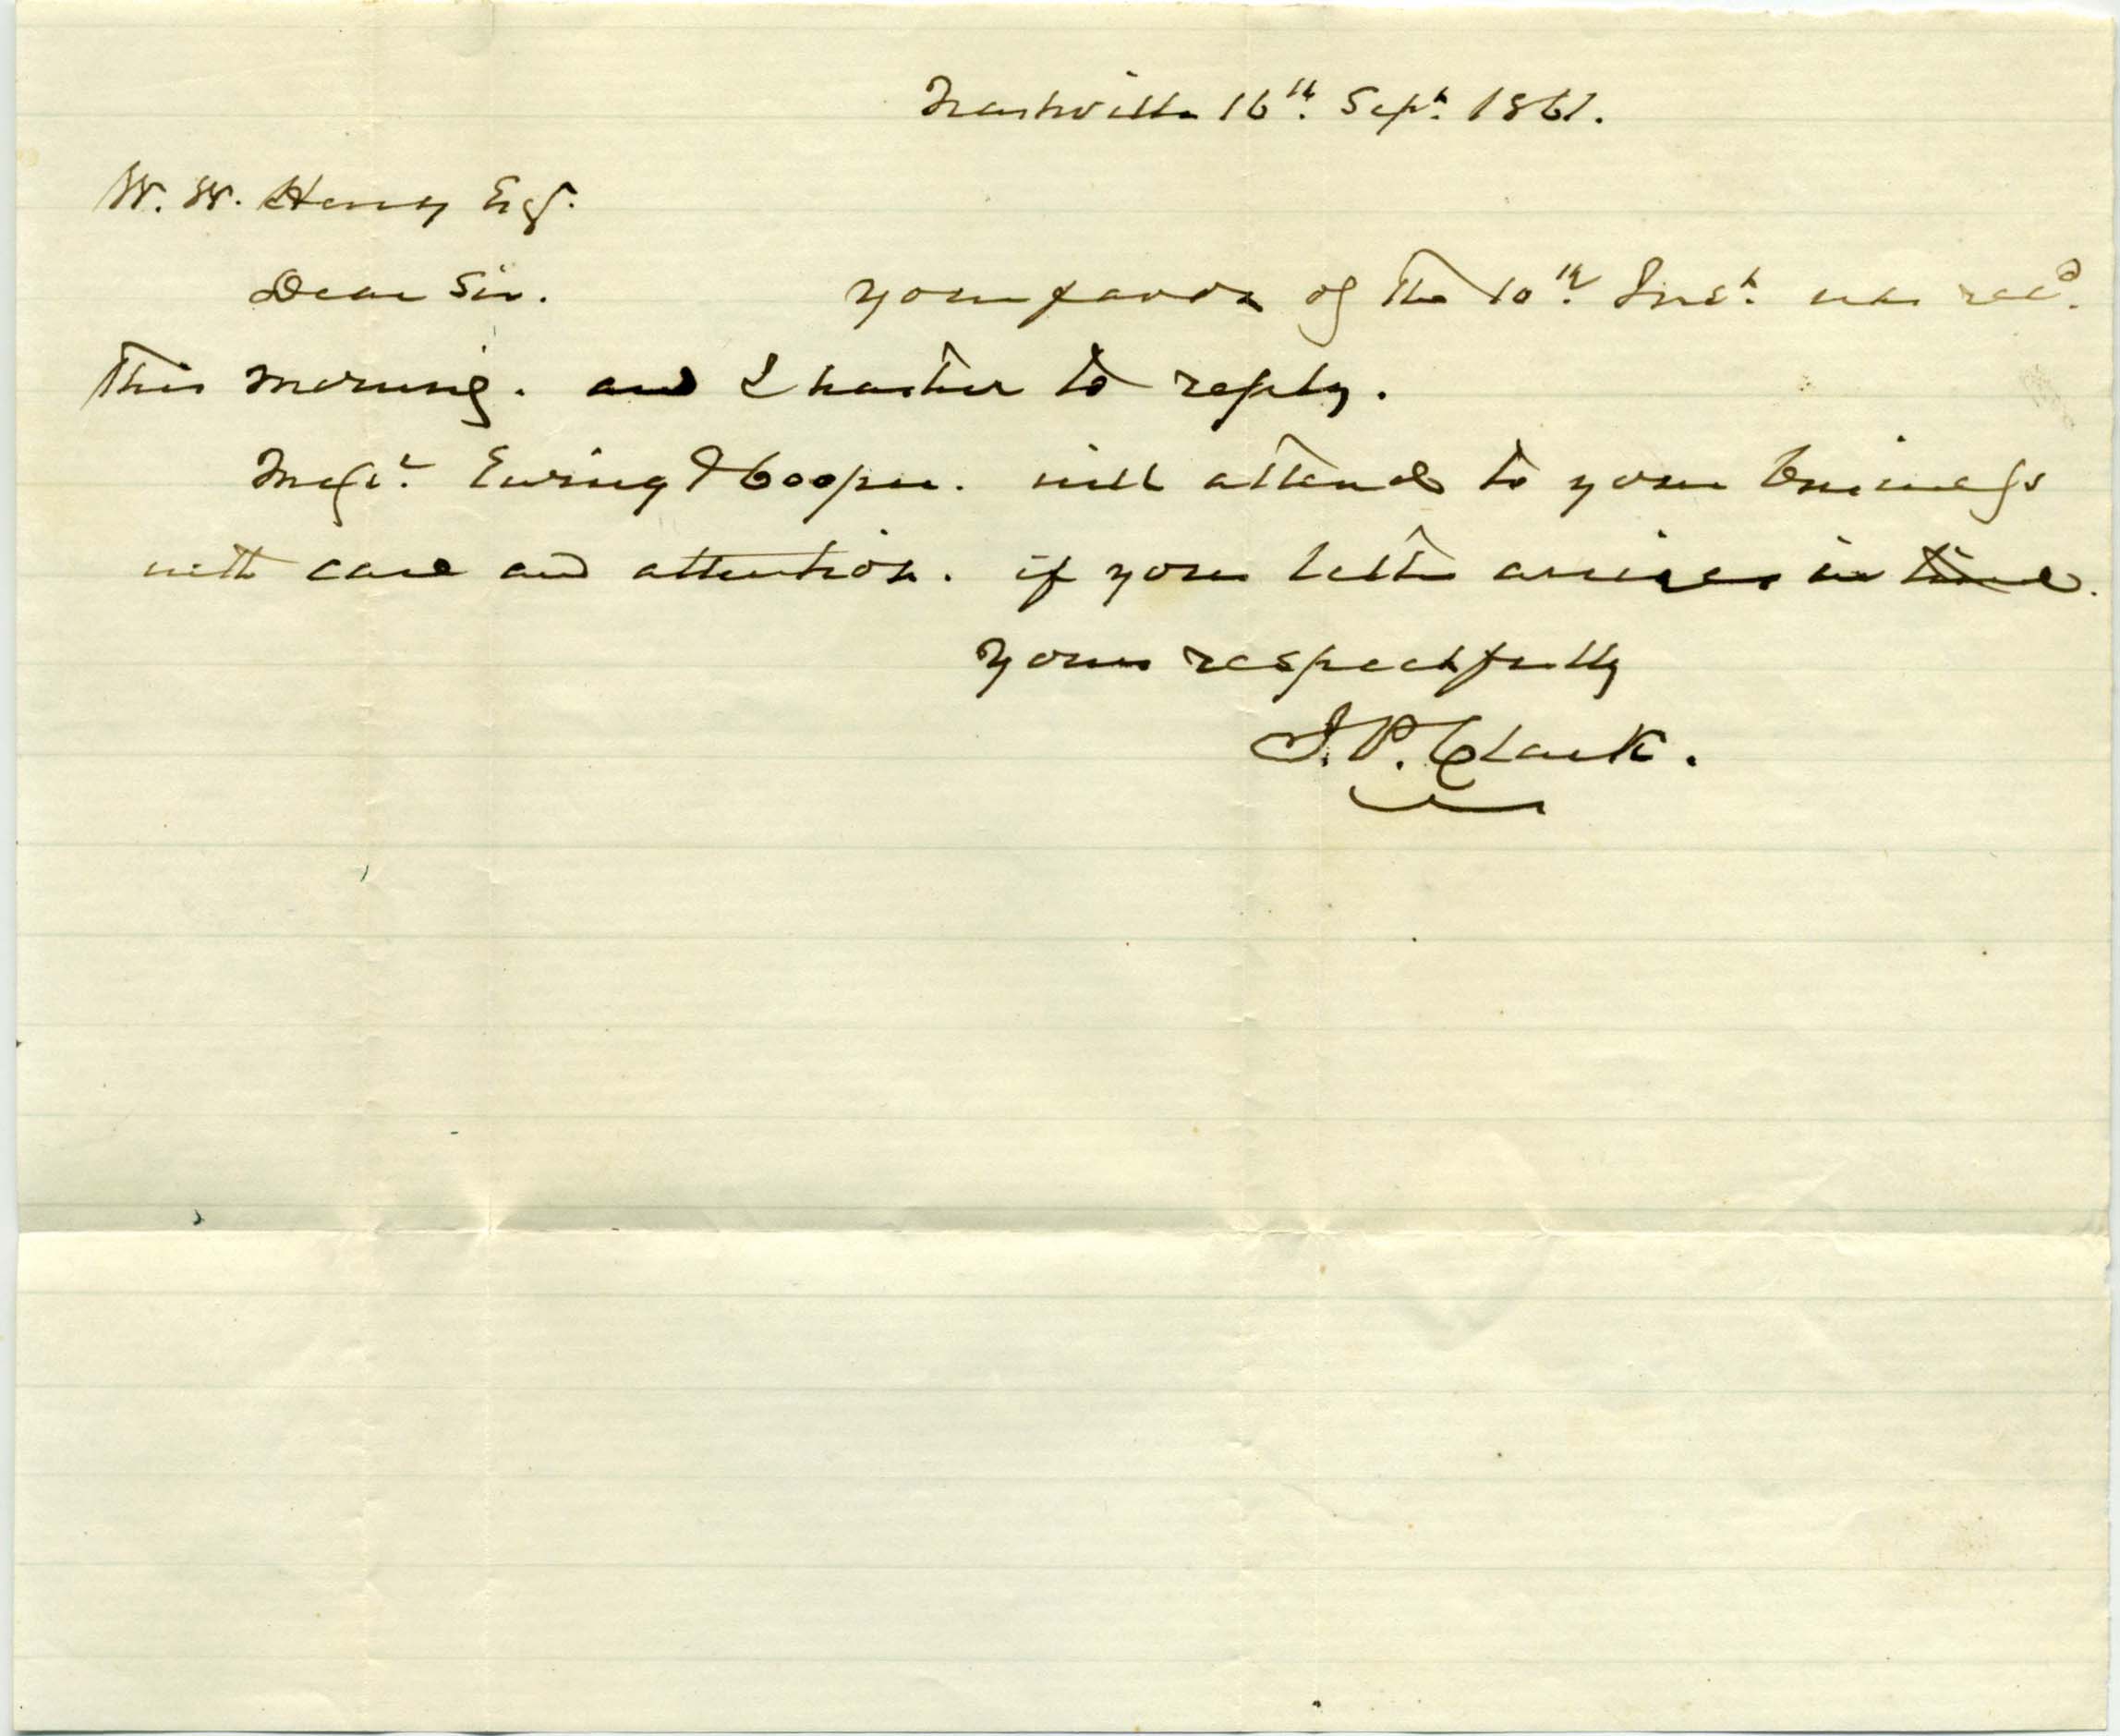 Nashville 16th. Sept. 1861.
W. W. Henry Esq.
Dear Sir. your favor of the 10th. Inst. was recd.
this morning. and I hasten to reply.
Messrs. Ewing & Cooper. will attend to your business
with care and attention. if your letter arrives in time.
yours respectfully
J. P. Clark.